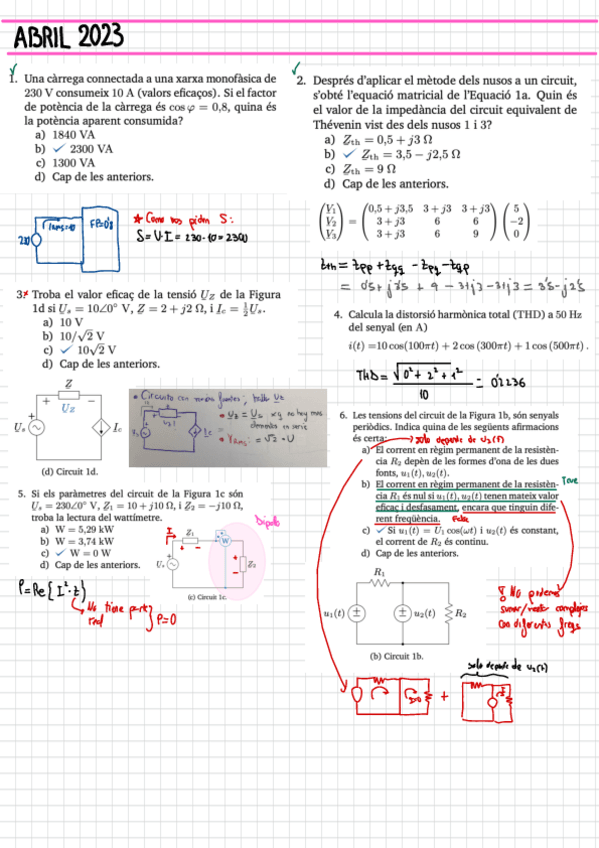 ABRIL 2023
1. Una càrrega connectada a una xarxa monofàsica de
230 V consumeix 10 A (valors eficaços). Si el factor
de potència de la càrrega és cos φ = 0,8, quina és
la potència aparent consumida?
a) 1840 VA
b) ✓ 2300 VA
c) 1300 VA
d) Cap de les anteriors.
230
FP=0'8
* Como nos piden S:
S=V·I = 230·10 = 2300
2. Després d'aplicar el mètode dels nusos a un circuit,
s'obté l'equació matricial de l'Equació 1a. Quin és
el valor de la impedància del circuit equivalent de
Thévenin vist des dels nusos 1 i 3?
a) Zth = 0,5 + j3 Ω
b) ✓ Zth = 3,5 − j2,5 Ω
c) Zth = 9 Ω
d) Cap de les anteriors.
(V1) (0,5 + j3,5 3 + j3 3 + j3) (5)
(V2) = (3 + j3 6 6) (−2)
(V3) (3 + j3 6 9) (0)
Zth = Zpp + Zqq - Zpq - Zqp
= 0'5 + j3'5 + 9 - 3+j3 - 3+j3 = 3'5 - j2'5
3. Troba el valor eficaç de la tensió UZ de la Figura
1d si Us = 10∠0° V, Z = 2 + j2 Ω, i Ic = ½Us.
a) 10 V
b) 10/√2 V
c) ✓ 10√2 V
d) Cap de les anteriors.
Z
UZ
Us
Ic
(d) Circuit 1d.
4. Calcula la distorsió harmònica total (THD) a 50 Hz
del senyal (en A)
i(t) = 10 cos(100πt) + 2 cos (300πt) + 1 cos (500πt) .
THD = √0² + 2² + 1² = 0'2236
10
5. Si els paràmetres del circuit de la Figura 1c són
Us = 230∠0° V, Z1 = 10 + j10 Ω, i Z2 = −j10 Ω,
troba la lectura del wattímetre.
a) W = 5,29 kW
b) W = 3,74 kW
c) ✓ W = 0 W
d) Cap de les anteriors.
I
Z1
W
Us
Z2
(c) Circuit 1c.
P=Re{I²·Z}
No tiene part
real
P=0
6. Les tensions del circuit de la Figura 1b, són senyals
periòdics. Indica quina de les següents afirmacions
és certa:
solo depende de u2(t)
a) El corrent en règim permanent de la resistèn-
cia R2 depèn de les formes d'ona de les dues
fonts, u1(t), u2(t).
b) El corrent en règim permanent de la resistèn-
cia R1 és nul si u1(t), u2(t) tenen mateix valor
eficaç i desfasament, encara que tinguin dife-
rent freqüència.
c) ✓ Si u1(t) = U1 cos(ωt) i u2(t) és constant,
el corrent de R2 és continu.
d) Cap de les anteriors.
R1
u1(t)
u2(t)
R2
(b) Circuit 1b.
No podemos
sumar/restar complejos
con diferentes freqs
solo depende de u2(t)
+